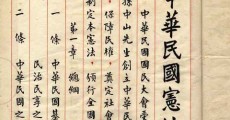 中華民國憲
中華民國國民大會受
孫中山先生創立中華
，保障民權，奠定社會
制定本憲法，頒行全國
第一章 總綱
一條 中華民國基
民治民享之
二條 中華民國之